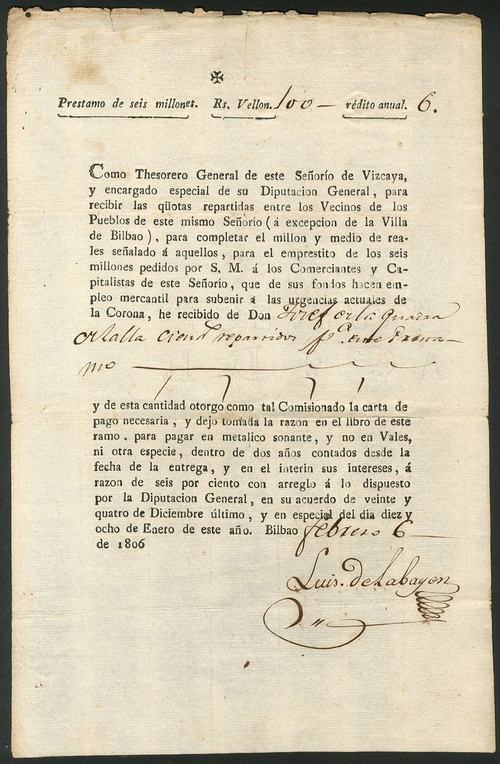 ✠
Prestamo de seis millones. Rs. Vellon. 100 — rédito anual. 6.
Como Thesorero General de este Señorío de Vizcaya,
y encargado especial de su Diputacion General, para
recibir las qüotas repartidas entre los Vecinos de los
Pueblos de este mismo Señorío (á excepcion de la Villa
de Bilbao), para completar el millon y medio de rea-
les señalado á aquellos, para el emprestito de los seis
millones pedidos por S. M. á los Comerciantes y Ca-
pitalistas de este Señorío, que de sus fondos hacen em-
pleo mercantil para subenir á las urgencias actuales de
la Corona, he recibido de Don Josef de la Quadra
cien repartidos
mo
y de esta cantidad otorgo como tal Comisionado la carta de
pago necesaria, y dejo tomada la razon en el libro de este
ramo, para pagar en metalico sonante, y no en Vales,
ni otra especie, dentro de dos años contados desde la
fecha de la entrega, y en el interin sus intereses, á
razon de seis por ciento con arreglo á lo dispuesto
por la Diputacion General, en su acuerdo de veinte y
quatro de Diciembre último, y en especial del dia diez y
ocho de Enero de este año. Bilbao febrero 6 —
de 1806
Luis. de Labayen